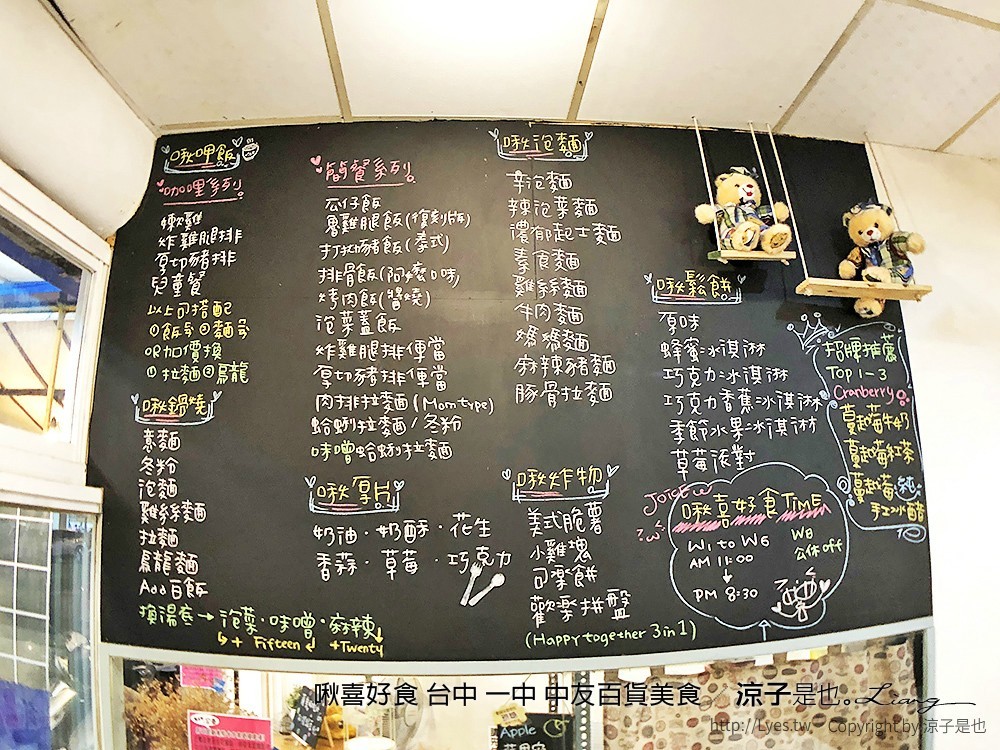 啾呷飯
咖哩系列
嫩雞
炸雞腿排
厚切豬排
兒童餐
以上可搭配
①飯 or ②麵
OR 加價換
①拉麵 ②烏龍
啾鍋燒
意麵
冬粉
泡麵
雞絲麵
拉麵
烏龍麵
Add 白飯
換湯底→泡菜·味噌·麻辣
+ Fifteen
+Twenty
簡餐系列
瓜仔飯
魯雞腿飯(復刻版)
打拋豬飯(泰式)
排骨飯(阿嬤口味)
烤肉飯(醬燒)
泡菜蓋飯
炸雞腿排便當
厚切豬排便當
肉排拉麵(Mom type)
蛤蜊拉麵/冬粉
味噌蛤蜊拉麵
啾厚片
奶油·奶酥·花生
香蒜·草莓·巧克力
啾泡麵
辛泡麵
辣泡菜麵
濃郁起士麵
素食麵
雞絲麵
牛肉麵
媽媽麵
麻辣豬麵
豚骨拉麵
啾炸物
美式脆薯
小雞塊
可樂餅
歡樂拼盤
(Happy together 3 in 1)
啾鬆餅
原味
蜂蜜冰淇淋
巧克力冰淇淋
巧克力香蕉冰淇淋
季節水果冰淇淋
草莓派對
招牌推薦
Top 1-3
Cranberry
蔓越莓牛奶
蔓越莓紅茶
蔓越莓純
手工冰醋
啾喜好食 TIME
W1 to W6
AM 11:00
PM 8:30
公休 off
Apple
啾喜好食 台中 一中 中友百貨美食
涼子是也。Liang
http://Lyes.tw Copyright by 涼子是也